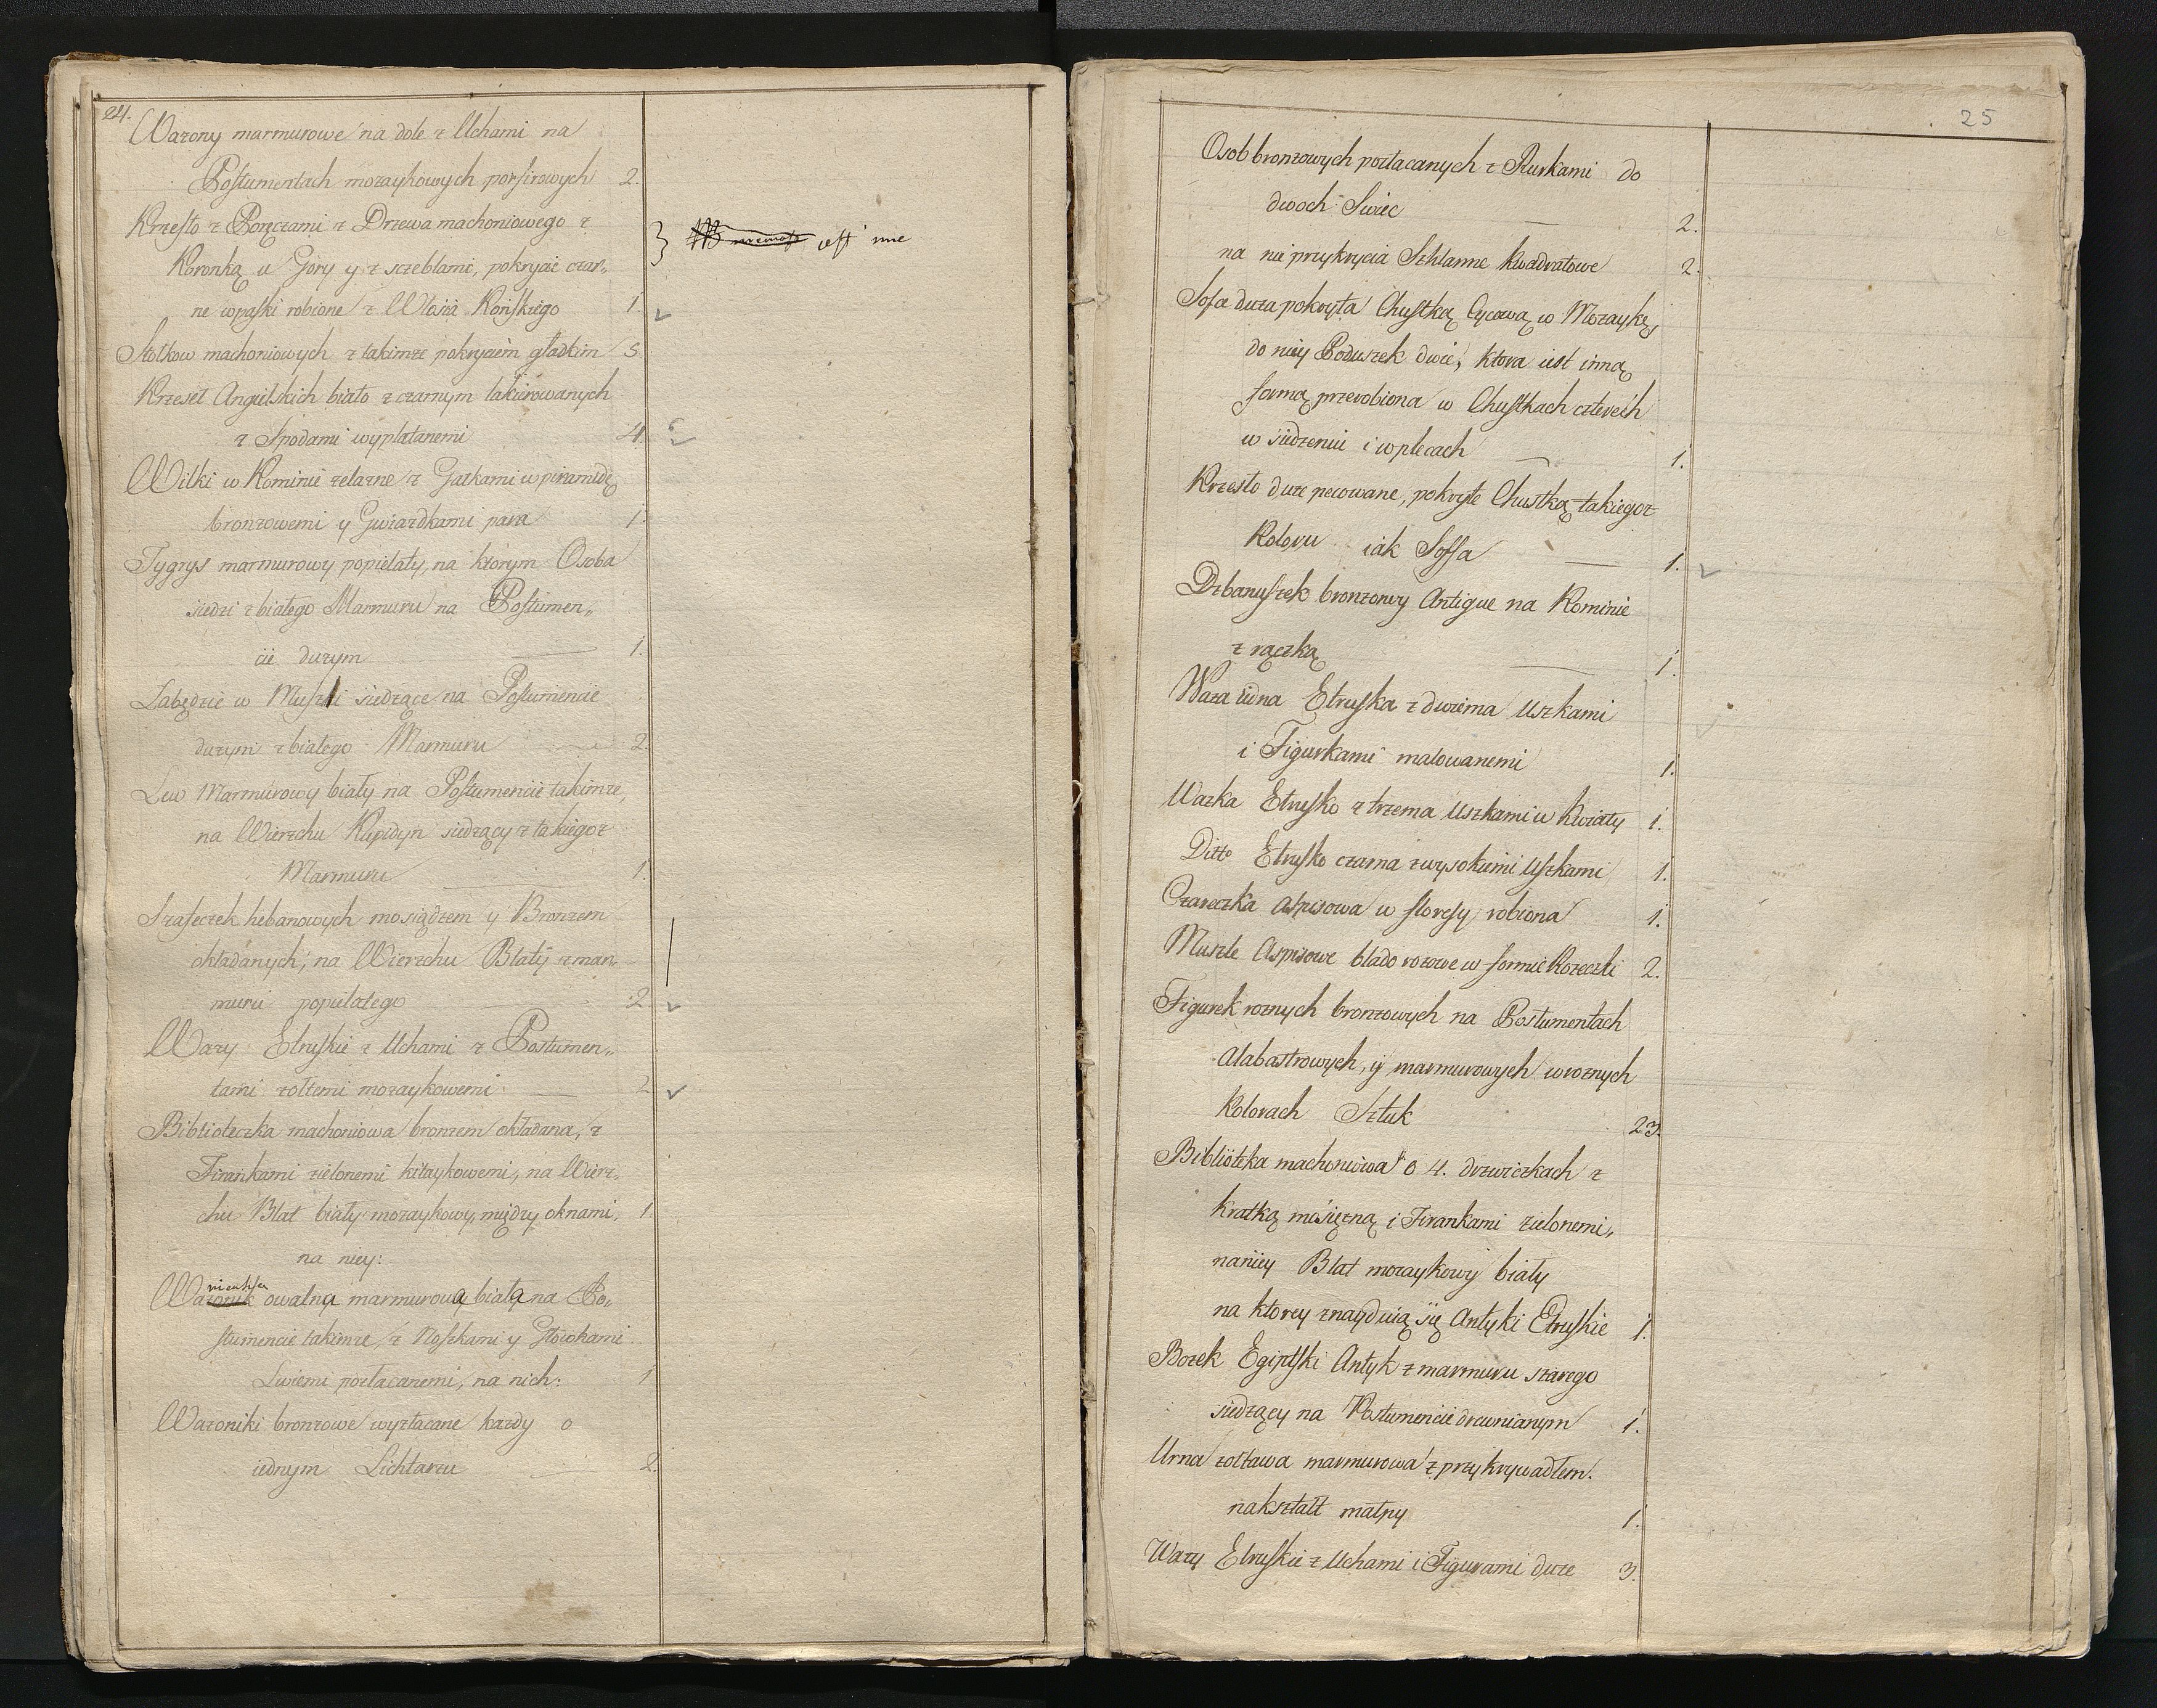 24.
Wazony marmurowe na dole z Uchami na
Postumentach mozaykowych porfirowych 2.
Krzesło z Poręczami z Drzewa machoniowego z
Koronką u Góry y z sczeblami, pokrycie czar„
ne w paski robione z Włosia Końskiego 1.
iest nie
Stołkow machoniowych z takimze pokryciem gładkim 5.
Krzeseł Angielskich biało z czarnym lakierowanych
z Spodami wyplatanemi 4.
Wilki w Kominie zelazne z Gałkami w piramidę
bronzowemi y Gwiazdkami para 1.
Tygrys marmurowy popielaty, na ktorym Osoba
siedzi z białego Marmuru na Postumen„
cie duzym 1.
Łabędzie w Muszli siedzące na Postumencie
duzym z białego Marmuru 2.
Lew Marmurowy biały na Postumencie takimze,
na Wierzchu Kupidyn siedzący z takiegoz
Marmuru 1.
Szafeczek hebanowych mosiądzem y Bronzem
okładanych, na Wierzchu Blaty z mar„
muru popielatego 2.
Wazy Etruskie z Uchami z Postumen„
tami zołtemi mozaykowemi 2
Biblioteczka machoniowa bronzem okładana, z
Firankami zielonemi kitaykowemi, na Wierz„
chu Blat biały mozaykowy, między oknami, 1.
na niey:
Wazonik owalną marmurową białą na Po„
stumencie takimze, z Noszkami y Głowkami
Lwiemi pozłacanemi, na nich: 1
Wazoniki bronzowe wyzłacane kazdy o
iednym Lichtarzu 2.
25
Osob bronzowych pozłacanych z Rurkami do
dwoch Swiec 2.
na nie przykrycia Szklanne kwadratowe 2.
Sofa duza pokryta Chustką Cycową w Mozaykę,
do niey Poduszek dwie, ktora iest inną
formą przerobiona w Chustkach czterech
w siedzeniu i w plecach 1.
Krzesło duze pecowane, pokryte Chustką takiegoz
Koloru iak Soffa 1.
Dzbanuszek bronzowy Antique na Kominie
z rączką 1.
Waza iedna Etruska z dwiema Uszkami
i Figurkami malowanemi 1.
Wazka Etrusko z trzema Uszkami w Kwiaty 1.
Ditto Etrusko czarna z wysokiemi Uszkami 1.
Czareczka Aspisowa w floresy robiona 1.
Muszle Aspisowe blado rozowe w formie Kozeczki 2.
Figurek roznych bronzowych na Postumentach
Alabastrowych, y marmurowych w roznych
Kolorach Sztuk 23.
Biblioteka machoniowa o 4. drzwiczkach z
kratką mosięzną i Firankami zielonemi,
na niey Blat mozaykowy biały
na ktorey znayduią się Antyki Etruskie 1.
Bozek Egiptski Antyk z marmuru szarego
siedzący na Postumencie drewnianym 1.
Urna zołtawa marmurowa z przykrywadłem.
nakształt małpy 1.
Wazy Etruskie z Uchami i Figurami duze 3.